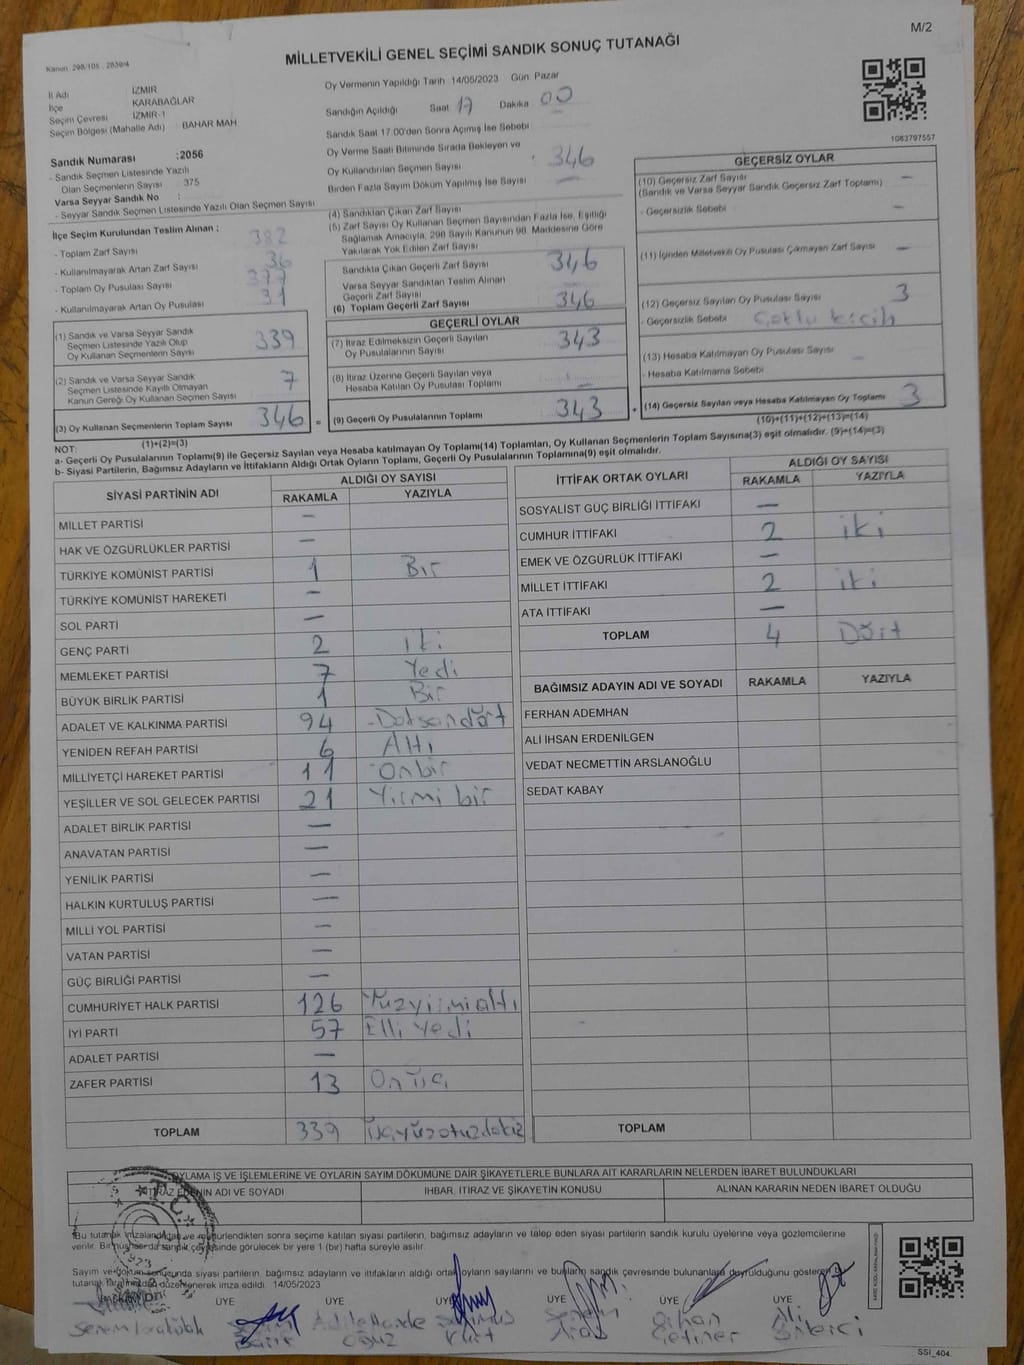 M/2
Kanun. 298/105 . 2839/4
MİLLETVEKİLİ GENEL SEÇİMİ SANDIK SONUÇ TUTANAĞI
İl Adı İZMİR
İlçe KARABAĞLAR
Seçim Çevresi İZMİR-1
Seçim Bölgesi (Mahalle Adı) BAHAR MAH
Oy Vermenin Yapıldığı Tarih 14/05/2023 Gün Pazar
Sandığın Açıldığı Saat 17 Dakika 00
Sandık Saat 17:00'den Sonra Açımış İse Sebebi
Oy Verme Saati Bitiminde Sırada Bekleyen ve
Oy Kullandırılan Seçmen Sayısı 346
Birden Fazla Sayım Döküm Yapılmış İse Sayısı —
1083797557
Sandık Numarası :2056
- Sandık Seçmen Listesinde Yazılı
Olan Seçmenlerin Sayısı 375
Varsa Seyyar Sandık No :
- Seyyar Sandık Seçmen Listesinde Yazılı Olan Seçmen Sayısı
İlçe Seçim Kurulundan Teslim Alınan :
- Toplam Zarf Sayısı 382
- Kullanılmayarak Artan Zarf Sayısı 36
- Toplam Oy Pusulası Sayısı 377
- Kullanılmayarak Artan Oy Pusulası 31
(1) Sandık ve Varsa Seyyar Sandık
Seçmen Listesinde Yazılı Olup
Oy Kullanan Seçmenlerin Sayısı 339
(2) Sandık ve Varsa Seyyar Sandık
Seçmen Listesinde Kayıtlı Olmayan
Kanun Gereği Oy Kullanan Seçmen Sayısı 7
(3) Oy Kullanan Seçmenlerin Toplam Sayısı 346 =
(1)+(2)=(3)
(4) Sandıktan Çıkan Zarf Sayısı
(5) Zarf Sayısı Oy Kullanan Seçmen Sayısından Fazla İse, Eşitliği
Sağlamak Amacıyla, 298 Sayılı Kanunun 98. Maddesine Göre
Yakılarak Yok Edilen Zarf Sayısı
Sandıkta Çıkan Geçerli Zarf Sayısı 346
Varsa Seyyar Sandıktan Teslim Alınan
Geçerli Zarf Sayısı
(6) Toplam Geçerli Zarf Sayısı 346
GEÇERLİ OYLAR
(7) İtiraz Edilmeksizin Geçerli Sayılan
Oy Pusulalarının Sayısı 343
(8) İtiraz Üzerine Geçerli Sayılan veya
Hesaba Katılan Oy Pusulası Toplamı —
(9) Geçerli Oy Pusulalarının Toplamı 343 +
GEÇERSİZ OYLAR
(10) Geçersiz Zarf Sayısı —
(Sandık ve Varsa Seyyar Sandık Geçersiz Zarf Toplamı)
- Geçersizlik Sebebi —
(11) İçinden Milletvekili Oy Pusulası Çıkmayan Zarf Sayısı —
(12) Geçersiz Sayılan Oy Pusulası Sayısı 3
- Geçersizlik Sebebi
(13) Hesaba Katılmayan Oy Pusulası Sayısı —
- Hesaba Katılmama Sebebi
(14) Geçersiz Sayılan veya Hesaba Katılmayan Oy Toplamı 3
(10)+(11)+(12)+(13)=(14)
NOT:
a- Geçerli Oy Pusulalarının Toplamı(9) ile Geçersiz Sayılan veya Hesaba katılmayan Oy Toplamı(14) Toplamları, Oy Kullanan Seçmenlerin Toplam Sayısına(3) eşit olmalıdır. (9)+(14)=(3)
b- Siyasi Partilerin, Bağımsız Adayların ve İttifakların Aldığı Ortak Oyların Toplamı, Geçerli Oy Pusulalarının Toplamına(9) eşit olmalıdır.
SİYASİ PARTİNİN ADI ALDIĞI OY SAYISI
RAKAMLA YAZIYLA
MİLLET PARTİSİ —
HAK VE ÖZGÜRLÜKLER PARTİSİ —
TÜRKİYE KOMÜNİST PARTİSİ 1 Bir
TÜRKİYE KOMÜNİST HAREKETİ —
SOL PARTİ —
GENÇ PARTİ 2 iki
MEMLEKET PARTİSİ 7 Yedi
BÜYÜK BİRLİK PARTİSİ 1 Bir
ADALET VE KALKINMA PARTİSİ 94
YENİDEN REFAH PARTİSİ 6 Altı
MİLLİYETÇİ HAREKET PARTİSİ 11 Onbir
YEŞİLLER VE SOL GELECEK PARTİSİ 21 Yirmi bir
ADALET BİRLİK PARTİSİ —
ANAVATAN PARTİSİ —
YENİLİK PARTİSİ —
HALKIN KURTULUŞ PARTİSİ —
MİLLİ YOL PARTİSİ —
VATAN PARTİSİ —
GÜÇ BİRLİĞİ PARTİSİ —
CUMHURİYET HALK PARTİSİ 126 Yüzyirmialtı
İYİ PARTİ 57 Elli yedi
ADALET PARTİSİ —
ZAFER PARTİSİ 13 Onüç
TOPLAM 339
İTTİFAK ORTAK OYLARI ALDIĞI OY SAYISI
RAKAMLA YAZIYLA
SOSYALİST GÜÇ BİRLİĞİ İTTİFAKI —
CUMHUR İTTİFAKI 2 iki
EMEK VE ÖZGÜRLÜK İTTİFAKI —
MİLLET İTTİFAKI 2 iki
ATA İTTİFAKI —
TOPLAM 4 Dört
BAĞIMSIZ ADAYIN ADI VE SOYADI RAKAMLA YAZIYLA
FERHAN ADEMHAN
ALİ İHSAN ERDENİLGEN
VEDAT NECMETTİN ARSLANOĞLU
SEDAT KABAY
TOPLAM
OYLAMA İŞ VE İŞLEMLERİNE VE OYLARIN SAYIM DÖKÜMÜNE DAİR ŞİKAYETLERLE BUNLARA AİT KARARLARIN NELERDEN İBARET BULUNDUKLARI
İTİRAZ EDENİN ADI VE SOYADI İHBAR, İTİRAZ VE ŞİKAYETİN KONUSU ALINAN KARARIN NEDEN İBARET OLDUĞU
T.C.
Bu tutanak imzalandıktan ve mühürlendikten sonra seçime katılan siyasi partilerin, bağımsız adayların ve talep eden siyasi partilerin sandık kurulu üyelerine veya gözlemcilerine
verilir. Bir nüshası da sandık çevresinde görülecek bir yere 1 (bir) hafta süreyle asılır.
Sayım ve döküm sonucunda siyasi partilerin, bağımsız adayların ve ittifakların aldığı ortak oyların sayılarını ve bunların sandık çevresinde bulunanlara duyrulduğunu gösteren bu
tutanak tarafımızdan düzenlenerek imza edildi. 14/05/2023
ÜYE ÜYE ÜYE ÜYE ÜYE ÜYE
SSI_404